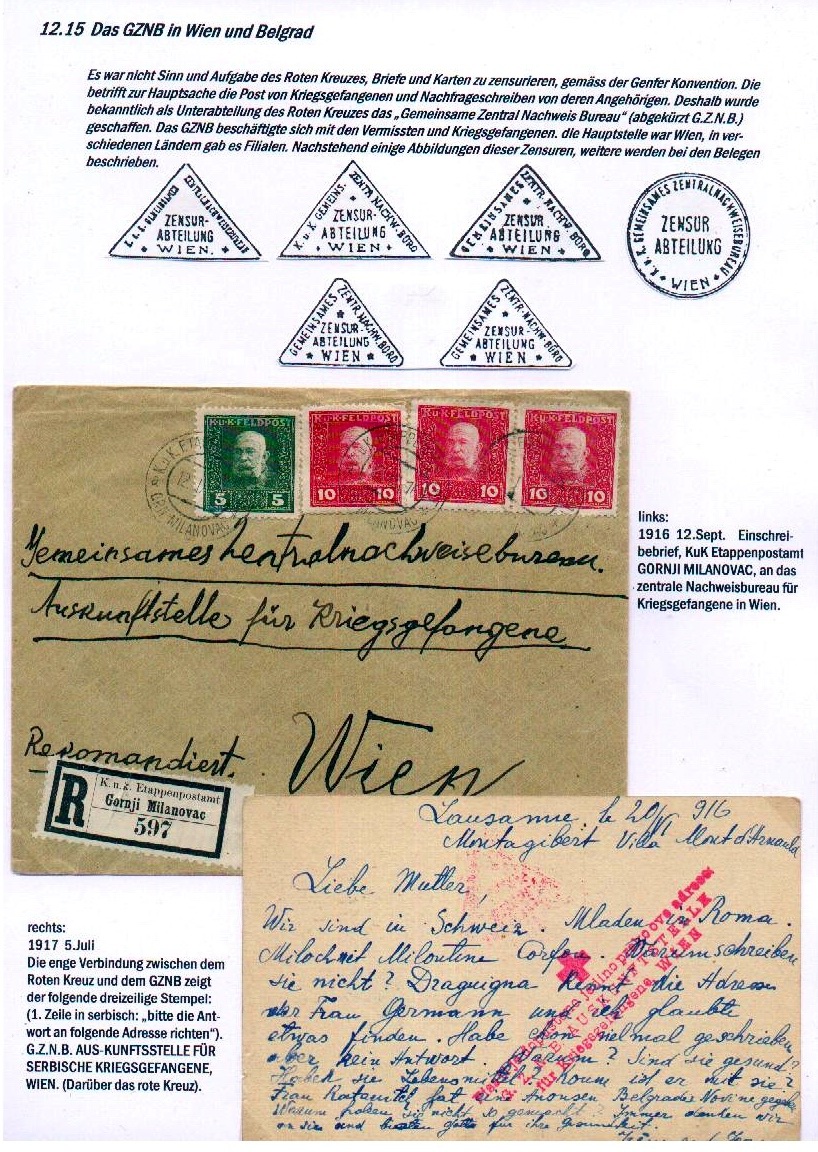 12.15 Das GZNB in Wien und Belgrad
Es war nicht Sinn und Aufgabe des Roten Kreuzes, Briefe und Karten zu zensurieren, gemäss der Genfer Konvention. Die
betrifft zur Hauptsache die Post von Kriegsgefangenen und Nachfrageschreiben von deren Angehörigen. Deshalb wurde
bekanntlich als Unterabteilung des Roten Kreuzes das „Gemeinsame Zentral Nachweis Bureau" (abgekürzt G.Z.N.B.)
geschaffen. Das GZNB beschäftigte sich mit den Vermissten und Kriegsgefangenen. die Hauptstelle war Wien, in ver-
schiedenen Ländern gab es Filialen. Nachstehend einige Abbildungen dieser Zensuren, weitere werden bei den Belegen
beschrieben.
ZENSUR-
ABTEILUNG
WIEN.
K.u.K. GEMEINS. ZENTR. NACHW. BÜRO
ZENSUR-
ABTEILUNG
WIEN
GEMEINSAMES ZENTR. NACHW. BÜRO
ZENSUR-
ABTEILUNG
WIEN
K.u.K. GEMEINSAMES ZENTRALNACHWEISEBUREAU
ZENSUR
ABTEILUNG
WIEN
GEMEINSAMES ZENTR. NACHW. BÜRO
ZENSUR-
ABTEILUNG
WIEN
GEMEINSAMES ZENTR. NACHW. BÜRO
ZENSUR-
ABTEILUNG
WIEN
K.u.K. FELDPOST
5 5
K.u.K. FELDPOST
10 10
K.u.K. FELDPOST
10 10
K.u.K. FELDPOST
10 10
MILANOVAC
Gemeinsames Zentralnachweisebureau.
Auskunftstelle für Kriegsgefangene
Rekomandiert.
Wien
R
K. u. k. Etappenpostamt
Gornji Milanovac
597
links:
1916 12.Sept. Einschrei-
bebrief, KuK Etappenpostamt
GORNJI MILANOVAC, an das
zentrale Nachweisbureau für
Kriegsgefangene in Wien.
Lausanne, le 20/ 916
Montagibert Villa Mont d'Arnauld
Liebe Mutter,
Wir sind in Schweiz. Mladen in Roma.
Miloch mit Miloutine Corfou. Warum schreiben
sie nicht? Draguigna kennt die Adressen
der Frau Germann und ich glaubte
etwas finden. Habe schon mal geschrieben
aber kein Antwort. Warum? Sind sie gesund?
Haben sie Lebensmittel? ist er mit sie?
Frau hat eine Belgrades Novine gegeben
Warum haben sie nicht so gemacht? Immer denken wir
an sie und Gott für ihre Gesundheit.
adresa:
G. Z. N. B. AUSKUNFTSTELLE
für Kriegsgefangene, WIEN
rechts:
1917 5.Juli
Die enge Verbindung zwischen dem
Roten Kreuz und dem GZNB zeigt
der folgende dreizeilige Stempel:
(1. Zeile in serbisch: „bitte die Ant-
wort an folgende Adresse richten").
G.Z.N.B. AUS-KUNFTSSTELLE FÜR
SERBISCHE KRIEGSGEFANGENE,
WIEN. (Darüber das rote Kreuz).